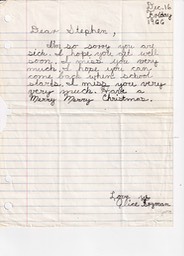 Dec. 16
1966
Dear Stephen,
I'm so sorry you are
sick. I hope you get well
soon. I miss you very
much. I hope you can
come back when school
starts. I miss you very
very much. Have
Merry Merry Christmas.
Love